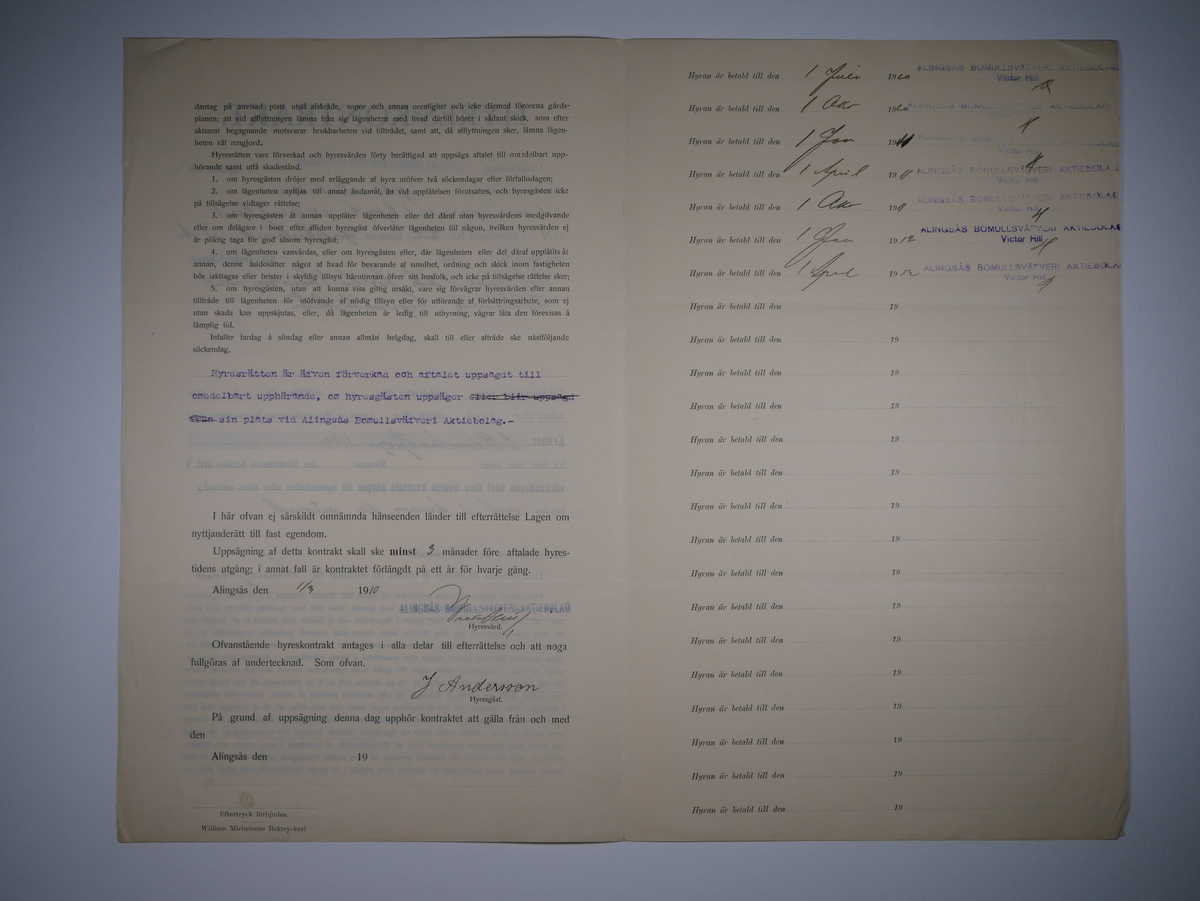 dantag på anvisad plats utslå afskräde, sopor och annan orenlighet och icke därmed förorena gårds-
planen; att vid afflyttningen lämna från sig lägenheten med hvad därtill hörer i sådant skick, som efter
aktsamt begagnande motsvarar brukbarheten vid tillträdet, samt att, då afflyttningen sker, lämna lägen-
heten väl rengjord.
Hyresrätten vare förverkad och hyresvärden förty berättigad att uppsäga aftalet till omedelbart upp-
hörande samt utfå skadestånd.
1. om hyresgästen dröjer med erläggande af hyra utöfver två söckendagar efter förfallodagen;
2. om lägenheten nyttjas till annat ändamål, är vid upplåtelsen förutsattes, och hyresgästen icke
på tillsägelse vidtager rättelse;
3. om hyresgästen åt annan upplåter lägenheten eller del däraf utan hyresvärdens medgifvande
eller om delägare i boet efter afliden hyresgäst öfverlåter lägenheten till någon, hvilken hyresvärden ej
är pliktig taga för god såsom hyresgäst;
4. om lägenheten vanvårdas, eller om hyresgästen eller, där lägenheten eller del däraf upplåtits åt
annan, denne åsidosätter något af hvad för bevarande af sundhet, ordning och skick inom fastigheten
bör iakttagas eller brister i skyldig tillsyn härutinnan öfver sitt husfolk, och icke på tillsägelse rättelse sker;
5. om hyresgästen, utan att kunna visa giltig ursäkt, vare sig förvägrar hyresvärden eller annan
tillträde till lägenheten för utöfvande af nödig tillsyn eller för utförande af förbättringsarbete, som ej
utan skada kan uppskjutas, eller, då lägenheten är ledig till uthyrning, vägrar låta den förevisas å
lämplig tid.
Infaller fardag å söndag eller annan allmän helgdag, skall till eller afträde ske nästföljande
söckendag.
Hyresrätten är äfven förverkad och aftalet uppsägdt till
omedelbart upphörande, om hyresgästen uppsäger eller blir uppsägd
från sin plats vid Alingsås Bomullsväfveri Aktiebolag.-
I här ofvan ej särskildt omnämnda hänseenden länder till efterrättelse Lagen om
nyttjanderätt till fast egendom.
Uppsägning af detta kontrakt skall ske minst 3 månader före aftalade hyres-
tidens utgång; i annat fall är kontraktet förlängdt på ett år för hvarje gång.
Alingsås den 1/3 1910
ALINGSÅS BOMULLSVÄFVERI AKTIEBOLAG
Hyresvärd.
Ofvanstående hyreskontrakt antages i alla delar till efterrättelse och att noga
fullgöras af undertecknad. Som ofvan.
J Andersson
Hyresgäst.
På grund af uppsägning denna dag upphör kontraktet att gälla från och med
den
Alingsås den 19
Eftertryck förbjudes.
William Michelsens Boktryckeri
Hyran är betald till den 1 Juli 1910 ALINGSÅS BOMULLSVÄFVERI AKTIEBOLAG
Victor Hill
Hyran är betald till den 1 Okt 1910 ALINGSÅS BOMULLSVÄFVERI AKTIEBOLAG
Victor Hill
Hyran är betald till den 1 Jan 1911 ALINGSÅS
Victor Hill
Hyran är betald till den 1 April 1911 ALINGSÅS BOMULLSVÄFVERI AKTIEBOLA
Victor Hill
Hyran är betald till den 1 Okt 1911 ALINGSÅS BOMULLSVÄFVERI AKTIEBOLAG
Victor Hill
Hyran är betald till den 1 Jan 1912 ALINGSÅS BOMULLSVÄFVERI AKTIEBOLA
Victor Hill
Hyran är betald till den 1 April 1912 ALINGSÅS BOMULLSVÄFVERI AKTIEBOLA
Victor Hill
Hyran är betald till den 19
Hyran är betald till den 19
Hyran är betald till den 19
Hyran är betald till den 19
Hyran är betald till den 19
Hyran är betald till den 19
Hyran är betald till den 19
Hyran är betald till den 19
Hyran är betald till den 19
Hyran är betald till den 19
Hyran är betald till den 19
Hyran är betald till den 19
Hyran är betald till den 19
Hyran är betald till den 19
Hyran är betald till den 19
Hyran är betald till den 19